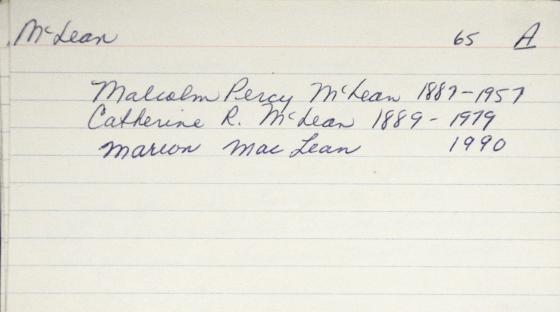 McLean 65 A
Malcolm Percy McLean 1887-1957
Catherine R. McLean 1889-1979
Marion MacLean 1990